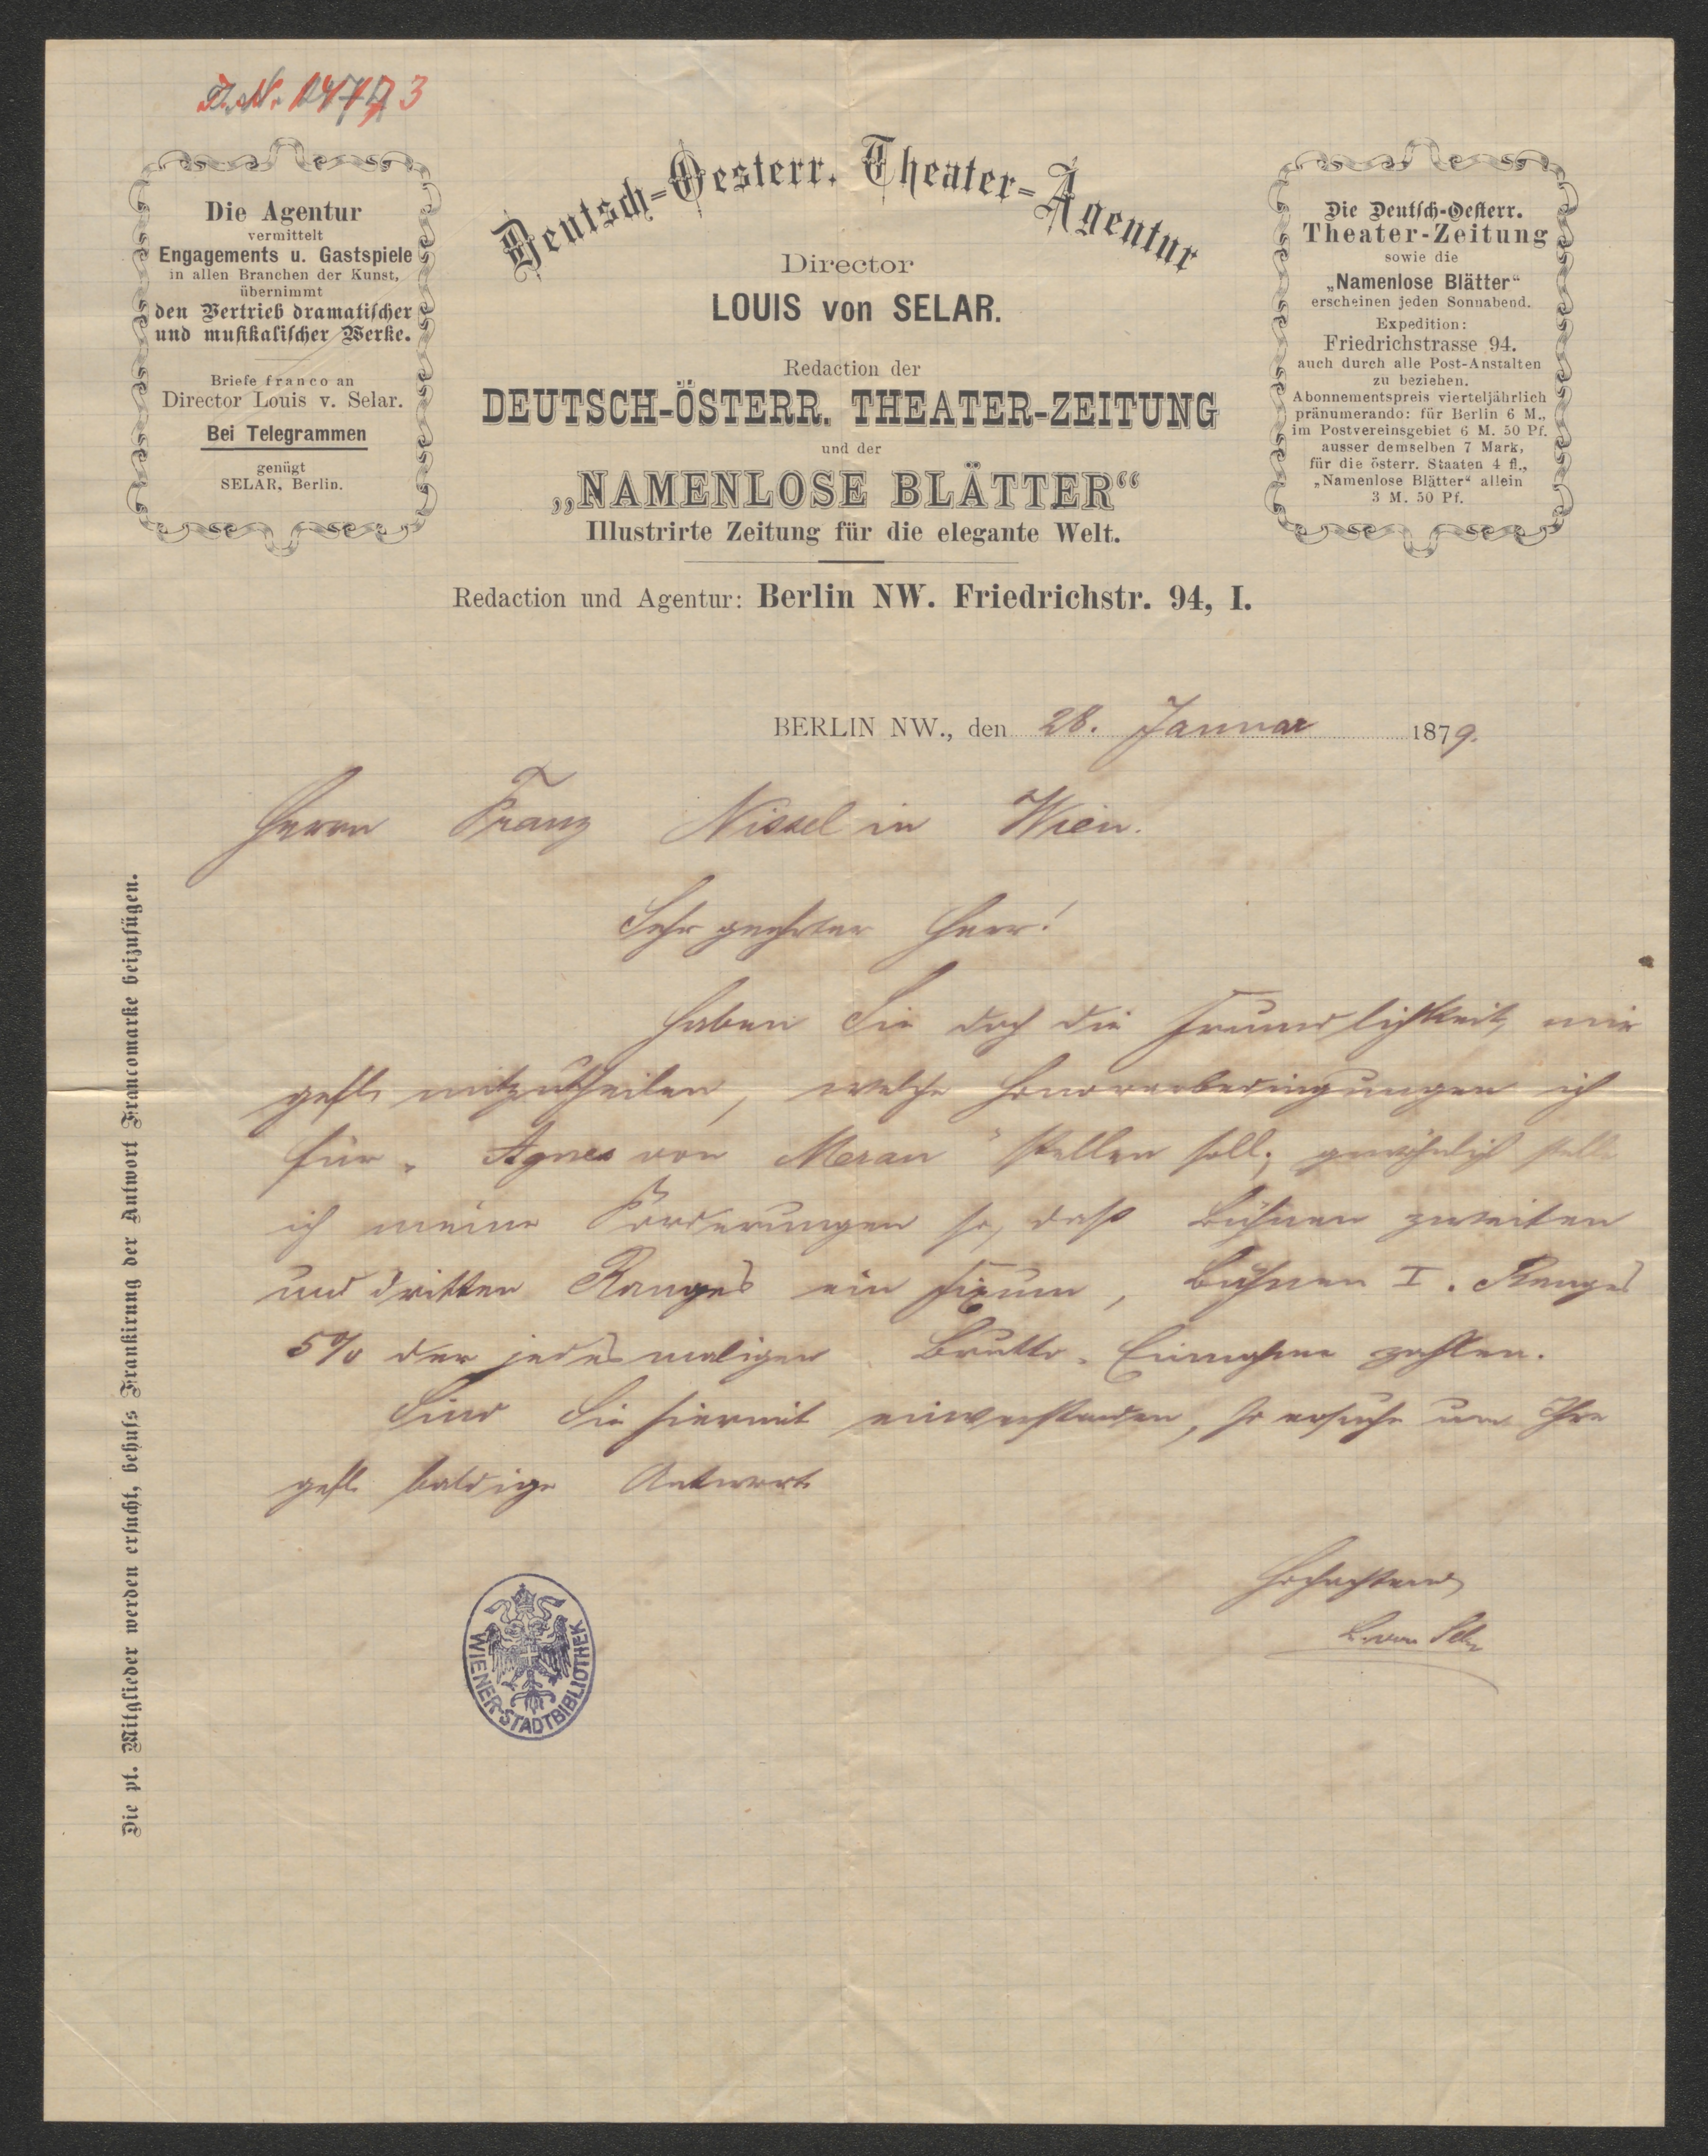 Die Agentur
vermittelt
Engagements u. Gastspiele
in allen Branchen der Kunst,
übernimmt
den Vertrieb dramatischer
und musikalischer Werke.
Briefe franco an
Director Louis v. Selar.
Bei Telegrammen
genügt
SELAR, Berlin.
Deutsch-Oesterr. Theater-Agentur
Director
LOUIS von SELAR.
Redaction der
DEUTSCH-ÖSTERR. THEATER-ZEITUNG
und der
„NAMENLOSE BLÄTTER“
Illustrirte Zeitung für die elegante Welt.
Redaction und Agentur: Berlin NW. Friedrichstr. 94, I.
Die Deutsch-Oesterr.
Theater-Zeitung
sowie die
„Namenlose Blätter“
erscheinen jeden Sonnabend.
Expedition:
Friedrichstrasse 94.
auch durch alle Post-Anstalten
zu beziehen.
Abonnementspreis vierteljährlich
pränumerando: für Berlin 6 M.,
im Postvereinsgebiet 6 M. 50 Pf.
ausser demselben 7 Mark,
für die österr. Staaten 4 fl.,
„Namenlose Blätter“ allein
3 M. 50 Pf.
BERLIN NW., den 28. Januar 1879.
Herrn Franz Nissel in Wien.
Sehr geehrter Herr!
Haben Sie doch die Freundlichkeit, mir
gefl. mitzutheilen, welche Honorarbedingungen ich
für „Agnes von Meran“ stellen soll; gewöhnlich stelle
ich meine Forderungen so, daß Bühnen zweiten
und dritten Ranges ein Fixum, Bühnen I. Ranges
5% der jedesmaligen Brutto-Einnahme zahlen.
Sind Sie hiermit einverstanden, so ersuche um Ihre
gefl. baldige Antwort.
Hochachtend
L. von Selar
Die pt. Mitglieder werden ersucht, behufs Frankirung der Antwort Francomarke beizufügen.
WIENER-STADTBIBLIOTHEK